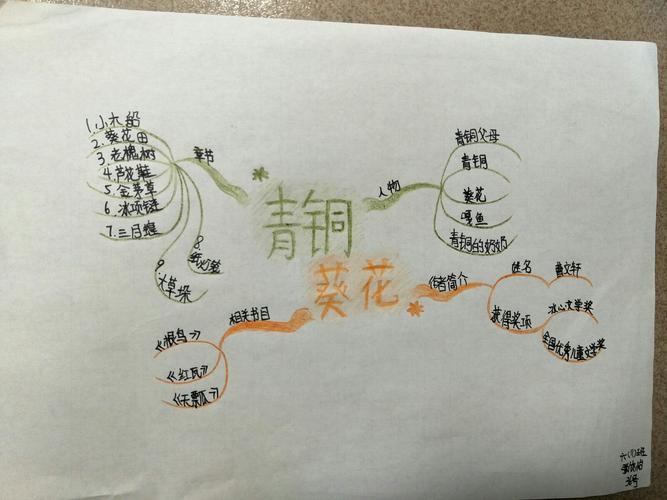 青铜
葵花
章节
1.小木船
2.葵花田
3.老槐树
4.芦花鞋
5.金茅草
6.冰项链
7.三月蝗
8.纸灯笼
9.大草垛
人物
青铜父母
青铜
葵花
嘎鱼
青铜的奶奶
作者简介
姓名
曹文轩
获得奖项
冰心文学奖
全国优秀儿童文学奖
相关书目
《根鸟》
《红瓦》
《天瓢》
六(1)班